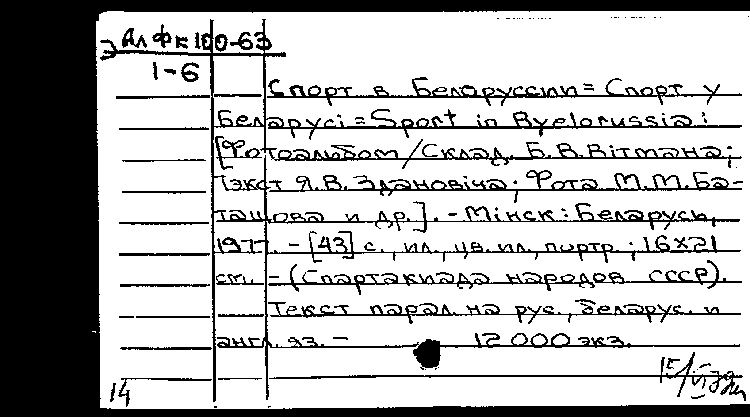 Ал Фк 100-63
1-6
Спорт в Беларуссии = Спорт у
Беларусі = Sport in Byelorussia:
[Фотоальбом/Склад. Б.В.Вітмана;
Тэкст Я.В. Здановіча; Фота М.М.Ба-
ташова и др.]. - Мінск: Беларусь,
1977. - [43] с., ил., цв. ил., портр.; 16×21
см. - (Спартакиада народов СССР).
Текст парал. на рус., беларус. и
англ. яз. - 12 000 экз.
14